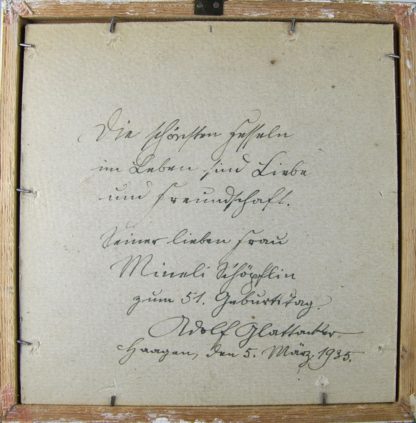 Die schönsten Fesseln
im Leben sind Liebe
und Freundschaft.
Seiner lieben Frau
Mineli Schöpflin
zum 51. Geburtstag.
Adolf Glattacker
Haagen, den 5. März 1935.